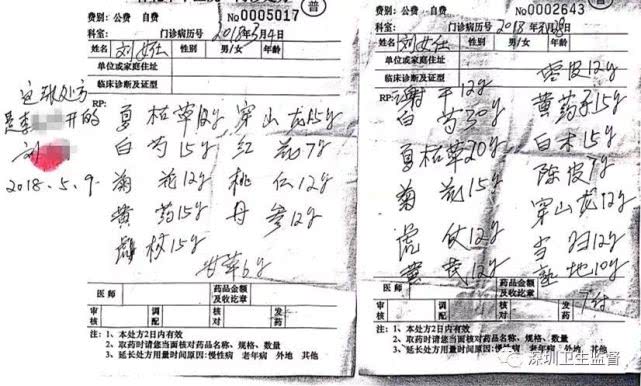 普
费别：公费 自费
No0005017
科室：
门诊病历号
2018年3月4日
姓名 刘女仕 性别 男/女 年龄
单位或家庭住址
临床诊断及证型
RP：
夏枯草12g 穿山龙15g
白芍15g 红花7g
菊花12g 桃仁12g
黄药15g 丹参12g
虎杖15g
甘草6g
医师 药品金额及收讫章
审核 调配 核对 发药
注：1、本处方2日内有效
2、取药时请您当面核对药品名称、规格、数量
3、延长处方用量时间原因：慢性病 老年病 外地 其他
这张处方
是李 开的
刘
2018.5.9.
费别：公费 自费
No0002643
科室：
门诊病历号
2018年3月
姓名 刘女仕 性别 男/女 年龄
单位或家庭住址
临床诊断及证型
RP：
干12g 皮12g
白芍30g 黄药子15g
夏枯草20g 白术15g
菊花15g 陈皮7g
穿山龙12g
虎仗12g 当归12g
黄芪12g 熟地10g
7付
医师 药品金额及收讫章
审核 调配 核对 发药
注：1、本处方2日内有效
2、取药时请您当面核对药品名称、规格、数量
3、延长处方用量时间原因：慢性病 老年病 外地 其他
深圳卫生监督